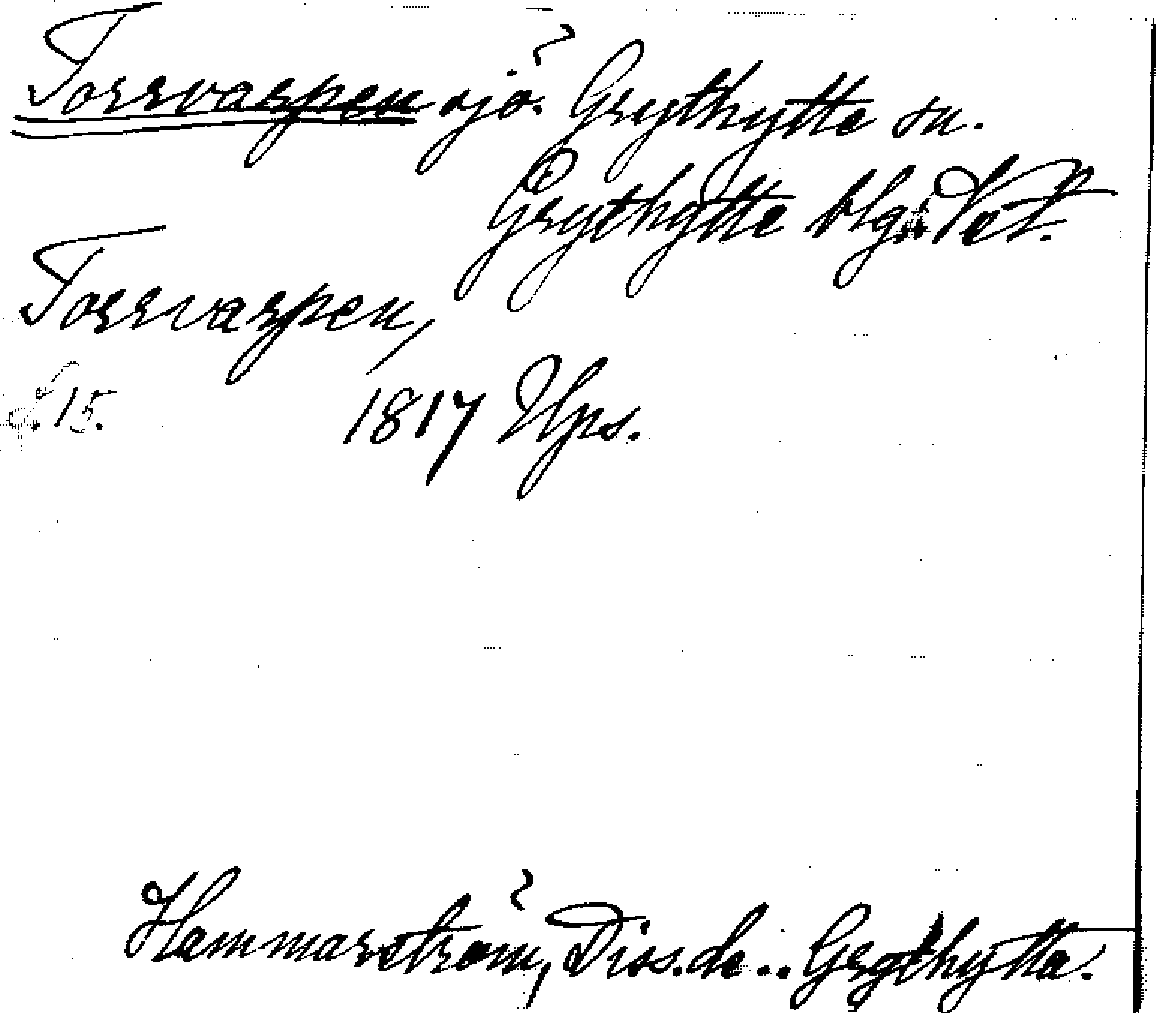 Torrvarpen sjö. Grythytte sn.
Grythytte blg. Vstl.
Torrvarpen,
s. 15. 1817 Ups.
Hammarström, Diss. de .. Grythytta.